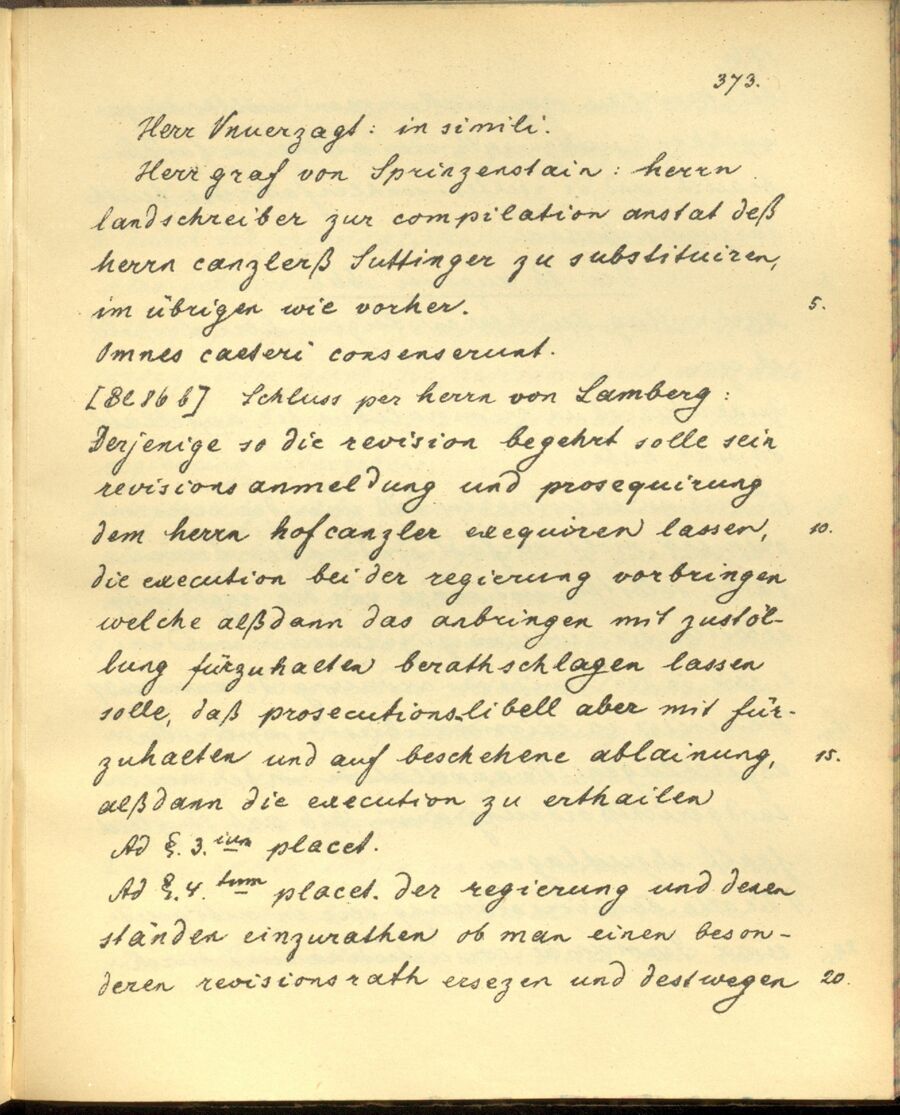 373.
Herr Unuerzagt: in simili.
Herr graf von Sprinzenstain: herrn
landschreiber zur compilation anstat deß
herrn canzlerß Suttinger zu substituiren,
im übrigen wie vorher. 5.
Omnes caeteri consenserunt.
[Bl 86 b] Schluss per herrn von Lamberg:
Derjenige so die revision begehrt solle sein
revisionsanmeldung und prosequirung
dem herrn hofcanzler exequiren lassen, 10.
die execution bei der regierung vorbringen
welche alßdann das anbringen mit zustöl-
lung fürzuhalten berathschlagen lassen
solle, daß prosecutionslibell aber mit für-
zuhalten und auf beschehene ablainung, 15.
alßdann die execution zu erthailen
Ad §. 3.ium placet.
Ad §. 4.tum placet. der regierung und denen
ständen einzurathen ob man einen beson-
deren revisionsrath ersezen und destwegen 20.